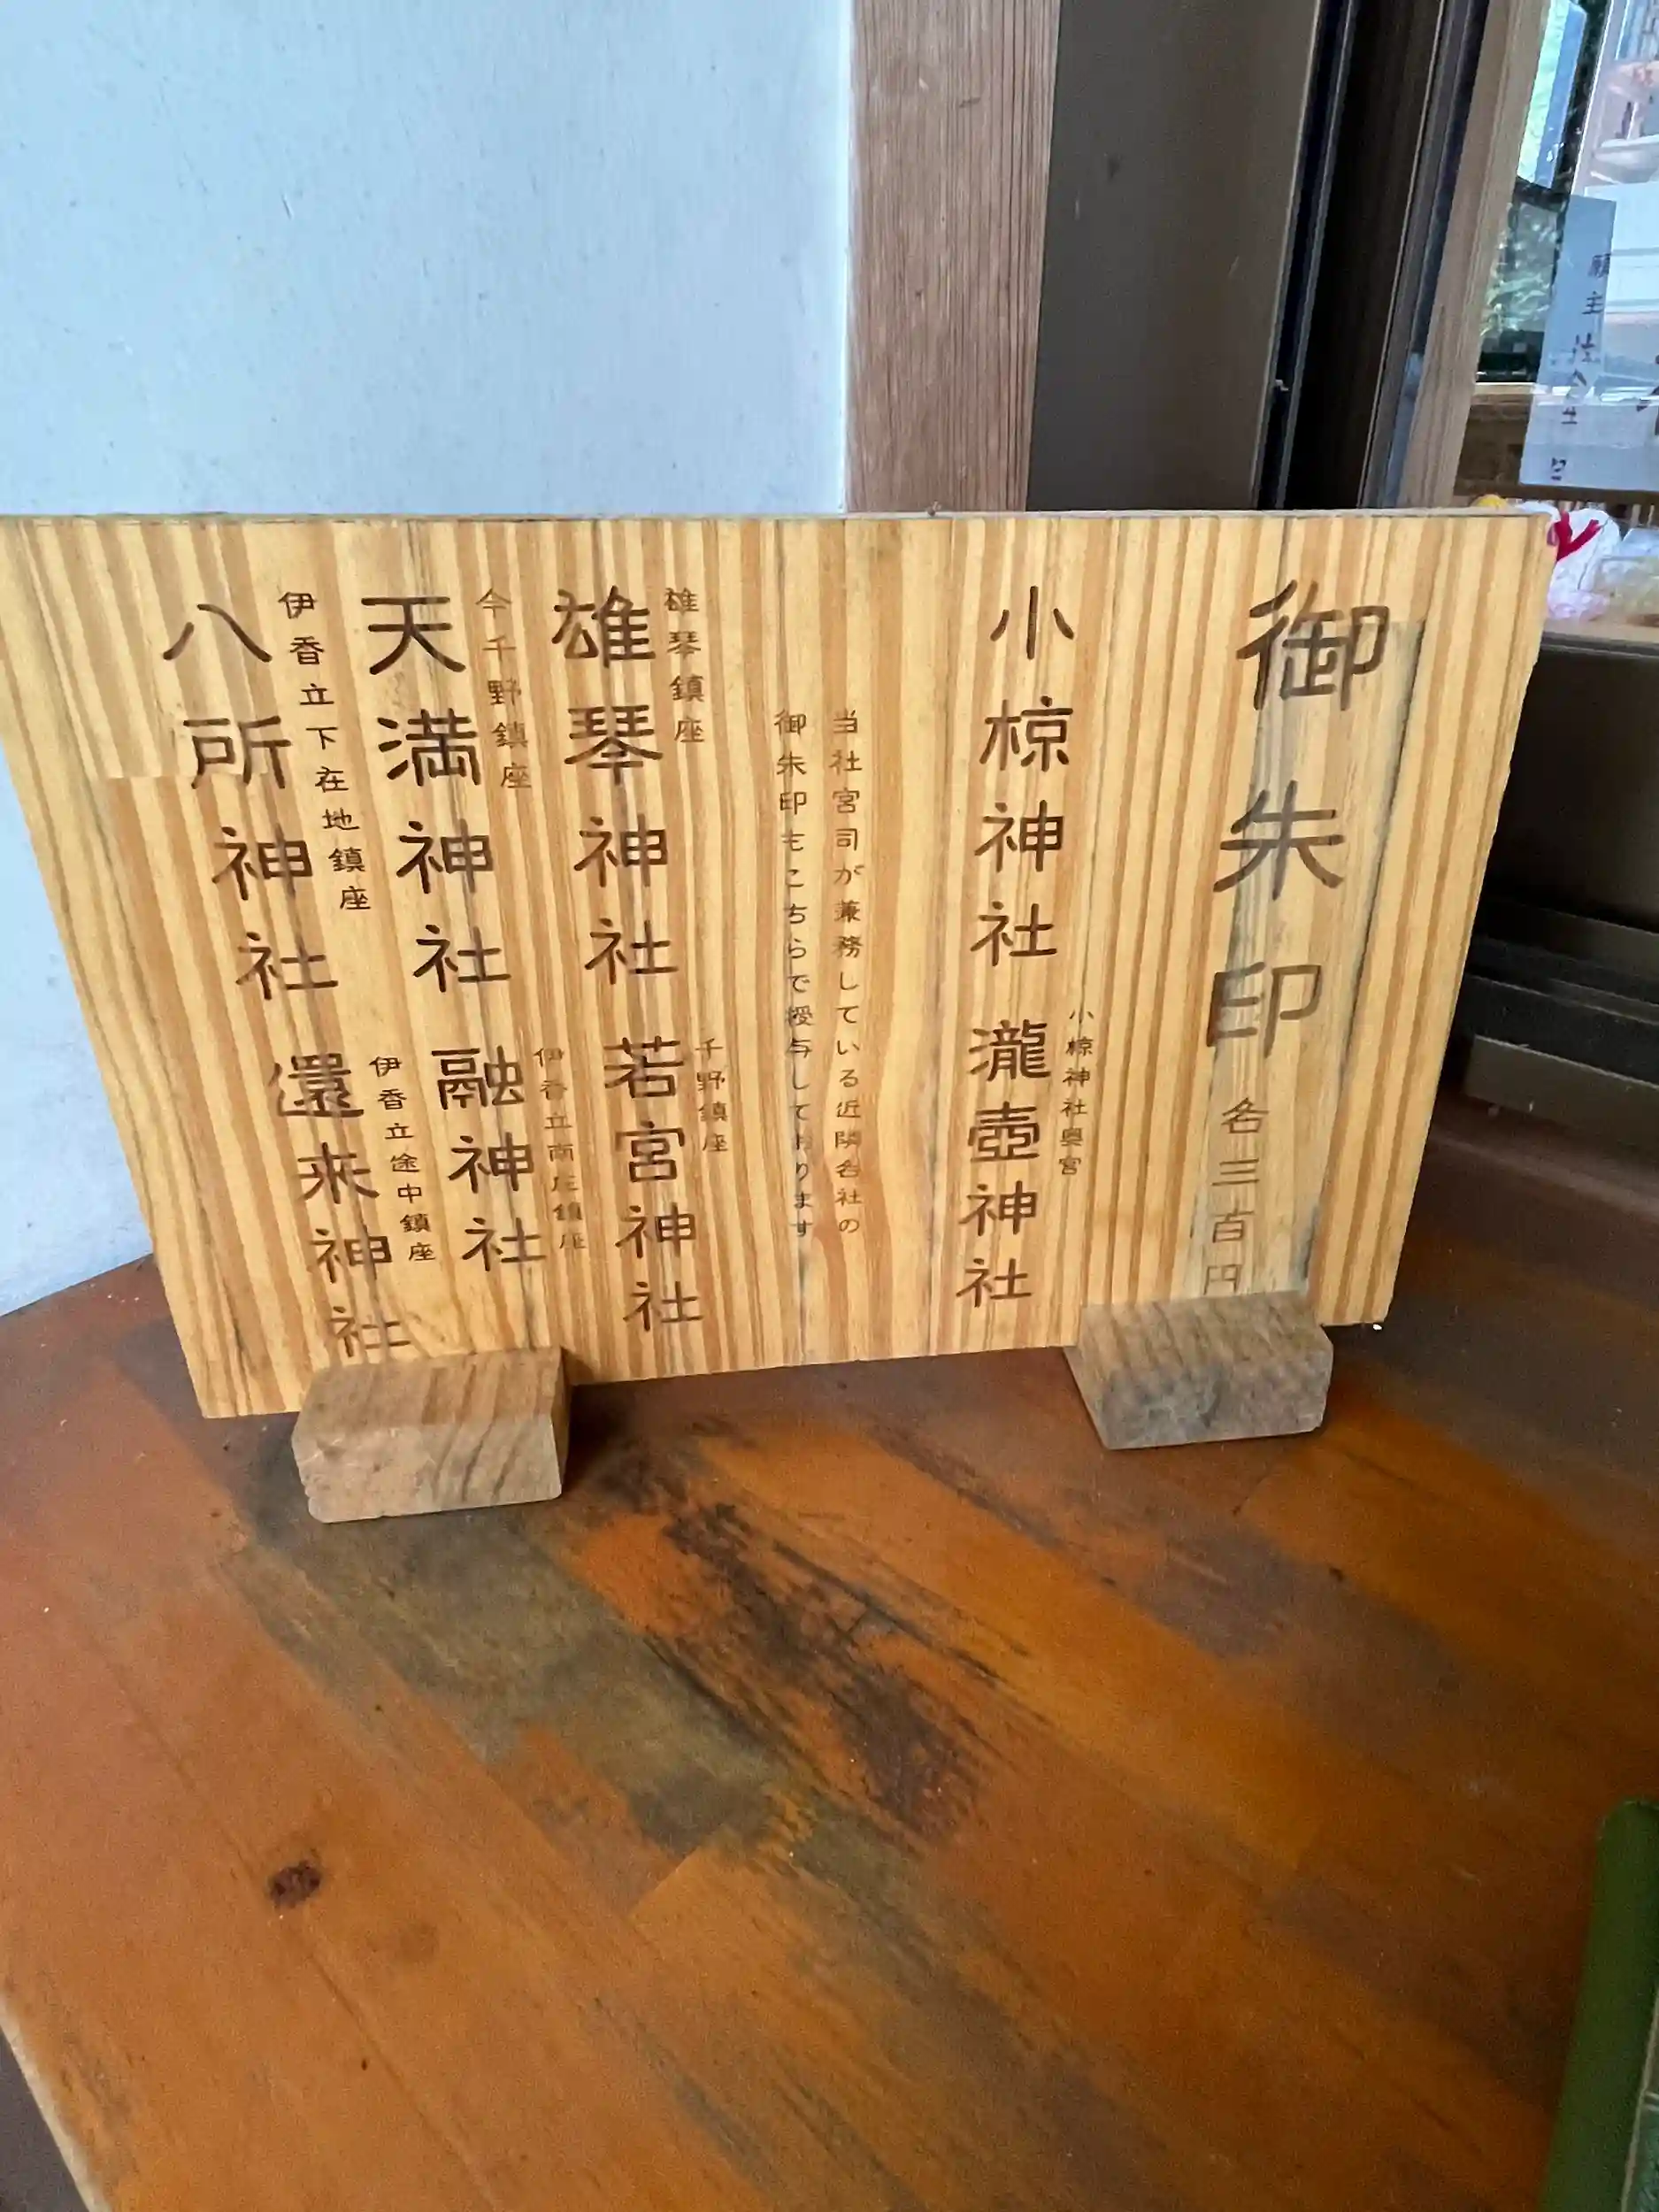 御朱印 各三百円
小椋神社
小椋神社奥宮
瀧壺神社
当社宮司が兼務している近隣各社の
御朱印もこちらで授与しております
雄琴鎮座
雄琴神社
千野鎮座
若宮神社
今千野鎮座
天満神社
伊香立南庄鎮座
融神社
伊香立下在地鎮座
八所神社
伊香立途中鎮座
還来神社
願主